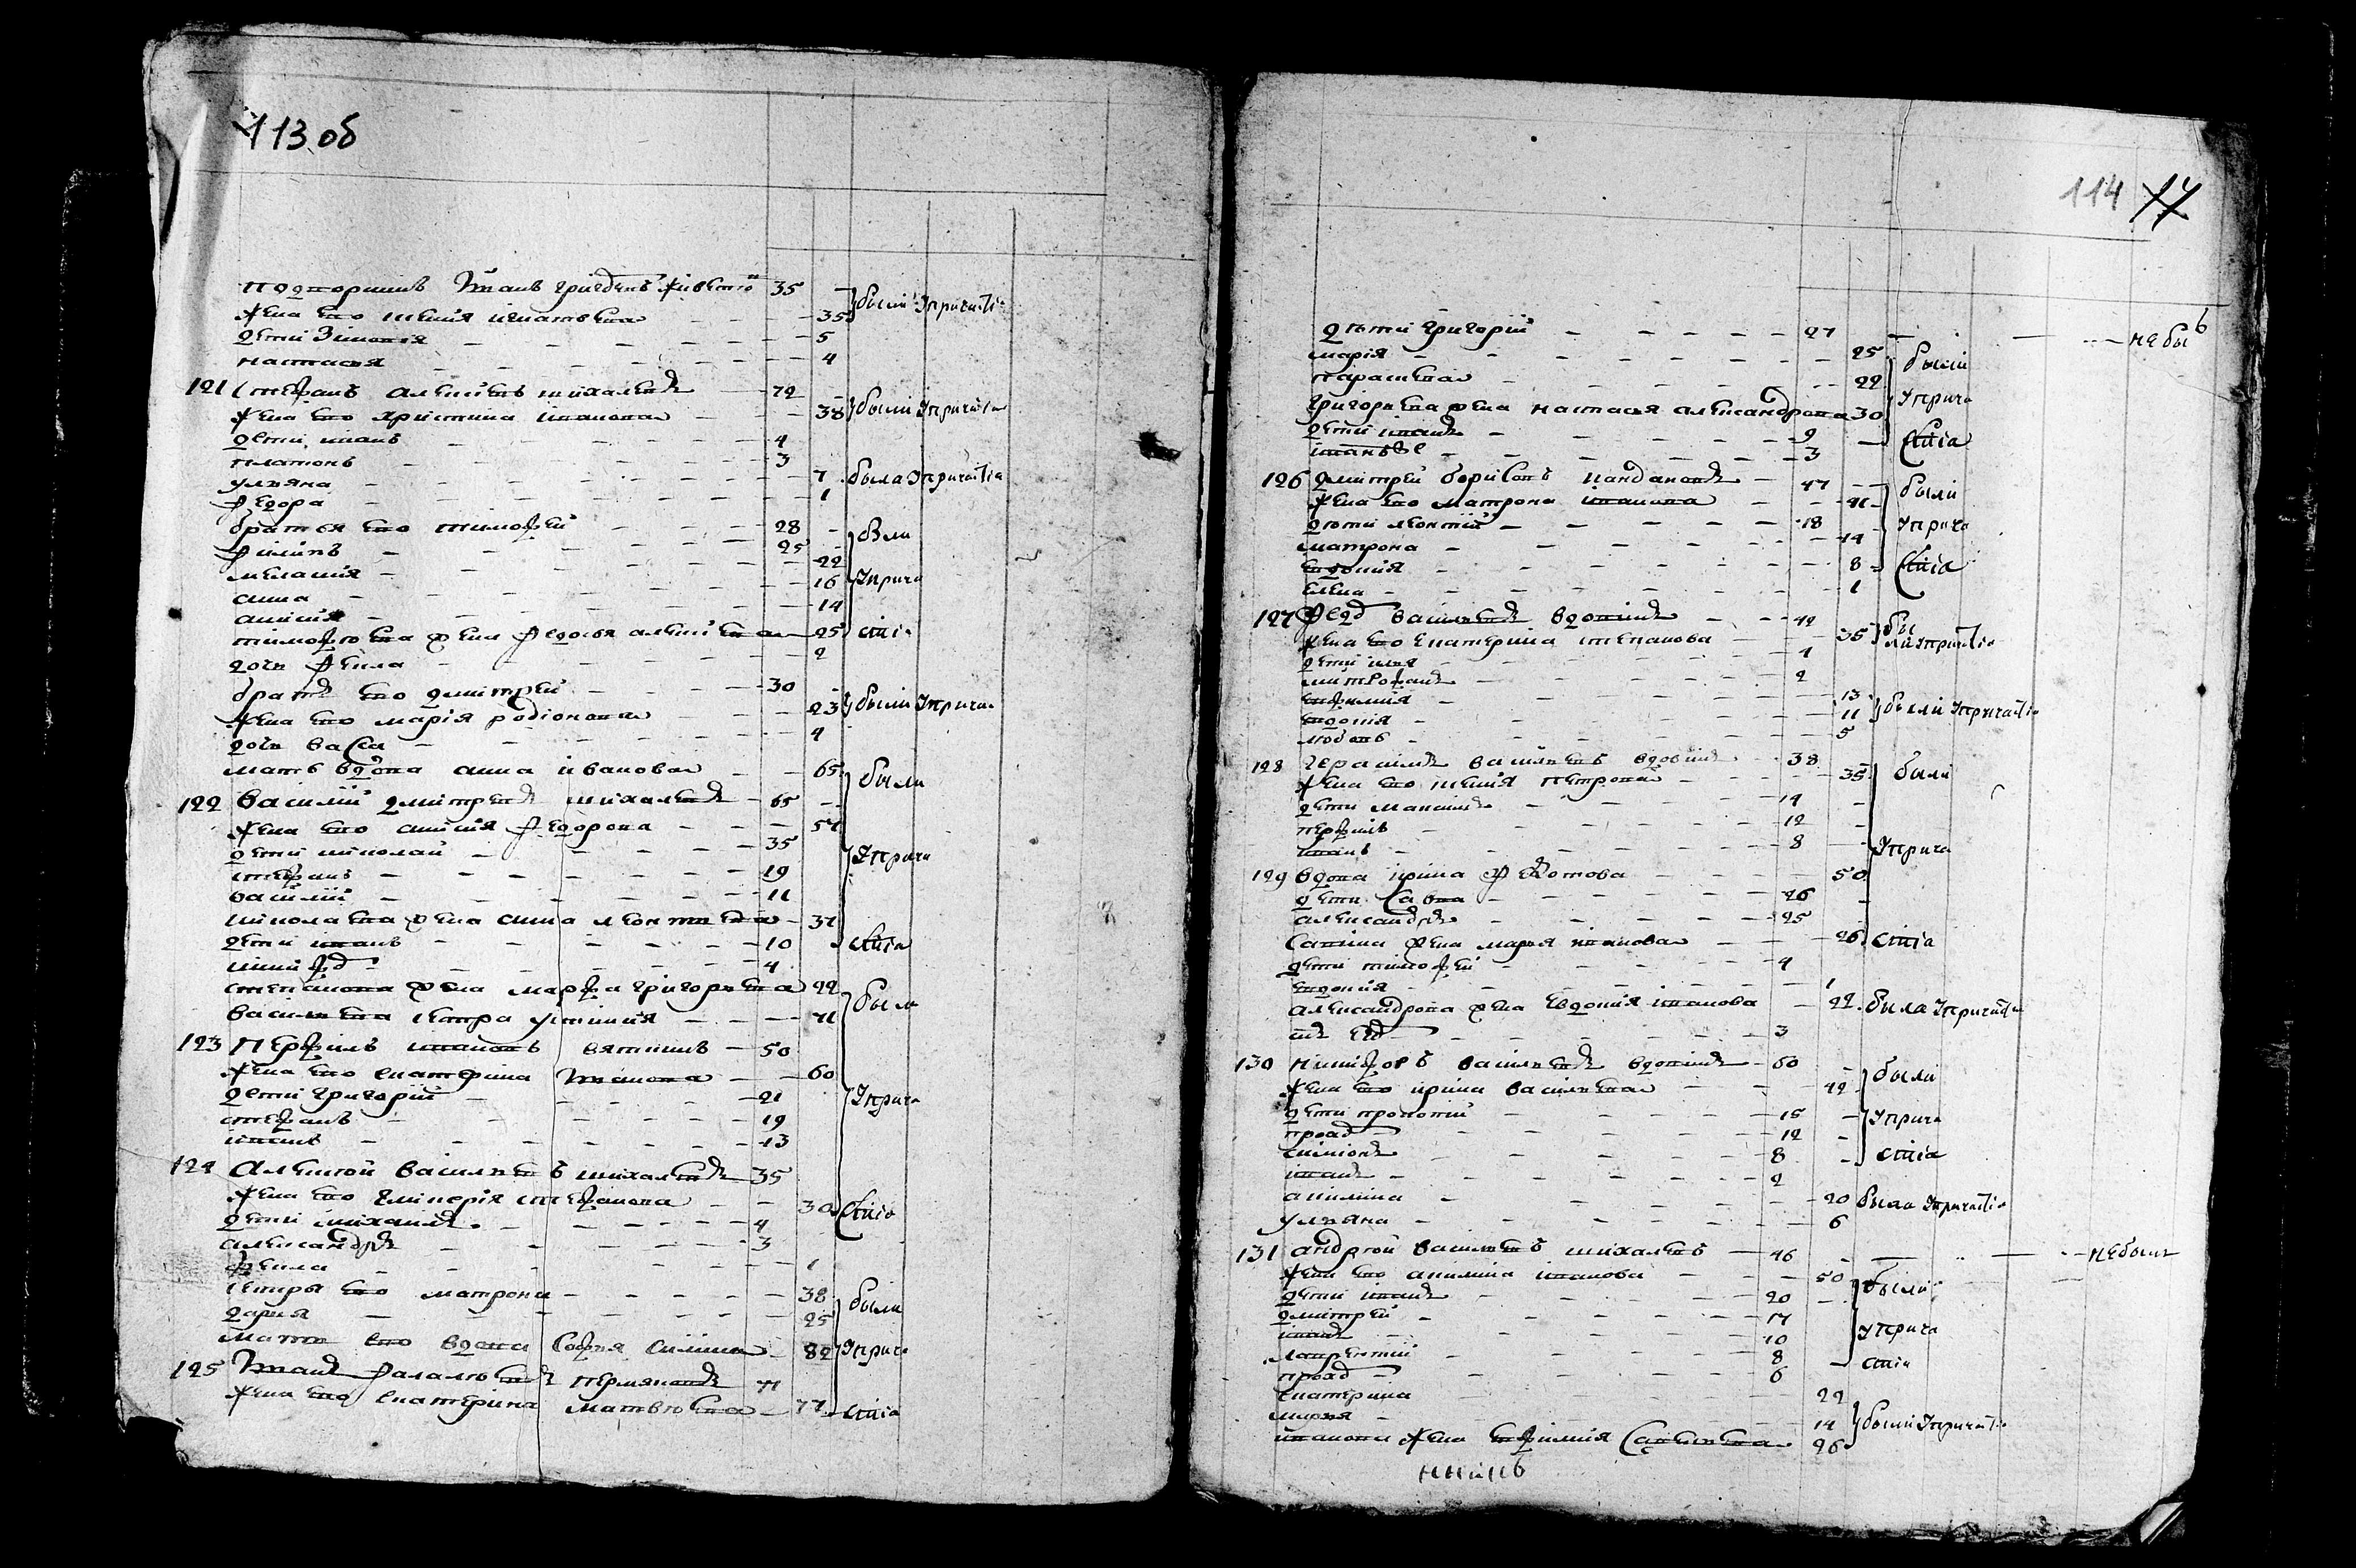 113 об
Иванъ 35
жена ево 35 были у причастия
дети 5
настасья 4
121 Стефанъ алексеевъ михалевъ 72
жена ево христина иванова 38 были у причастия
дети иванъ 4
платонъ 3
ульяна 7 была у причастия
федора 1
братья ево тимофей 28 были
филипъ 25
мелания 22
анна 16 у прича
14
тимофеева жена федосья алексеева 25 стия
дочь 2
братъ ево дмитрей 30
жена ево мария родионова 23 были у прича
дочь васса 4
мать вдова анна ивановa 65 были
122 василий дмитревъ михалевъ 65
жена ево федорова 57
дети николай 35 у прича
стефанъ 19
василий 11
николаева жена анна леонтьева 37
дети иванъ 10 стия
4
степанова жена марфа григорьева 22 были
васильева сестра устиния 71
123 Перфилъ ивановъ вяткинъ 50
жена ево екатерина Иванова 60
дети григорий 21 у прича
стефанъ 19
иванъ 13
124 Алексей васильевъ михалевъ 35
жена ево гликерия стефанова 30 стия
дети михаилъ 4
александръ 3
1
сестры ево матрона 38 были
дарья 25
мать ево вдова софья 82 у прича
125 Иванъ пермяковъ 71
жена ево екатерина матвеева 77 стия
114
дети григорий 27 не бы
мария 25 были
парасковa 22
григорьева жена настасья александрова 30 у прича
дети иванъ 9 стия
иванъ 3
126 дмитрей борисовъ 47 были
жена ево матрона иванова 41
дети леонтий 18 у прича
матрона 14
евдокия 8 стия
елена 1
127 федоръ васильевъ вдовинъ 42
жена ево екатерина степанова 35 были у причастия
дети илья 4
митрофанъ 2
евфимия 13
евдокия 11 были у причастия
любовь 5
128 герасимъ васильевъ вдовинъ 38
жена ево петрова 35 были
дети максимъ 14
перфилъ 12
иванъ 8 у прича
129 вдова ирина федотова 50
дети савва 26
александръ 25
савина жена марья иванова 26 стия
дети тимофей 4
евдокия 1
александрова жена евдокия иванова 22 была у причастия
3
130 никифоръ васильевъ вдовинъ 60
жена ево ирина васильева 42 были
дети прокопий 15 у прича
12
симионъ 8 стия
иванъ 2
акилина 20 была у причастия
ульяна 6
131 андрей васильевъ михалевъ 46 не былъ
жена ево акилина иванова 50
дети иванъ 20 были
дмитрей 17
иванъ 10 у прича
лаврентий 8 стия
6
екатерина 22
марья 14 были у причастия
иванова жена евфимия савельева 26